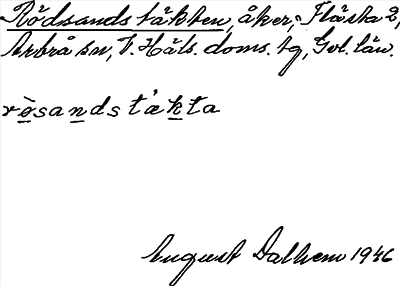 Rödsandstäkten, åker, Flästa 2,
Arbrå sn, V. Häls. doms. tg, Gvl. län.
rösandstækta
August Dalhem 1946